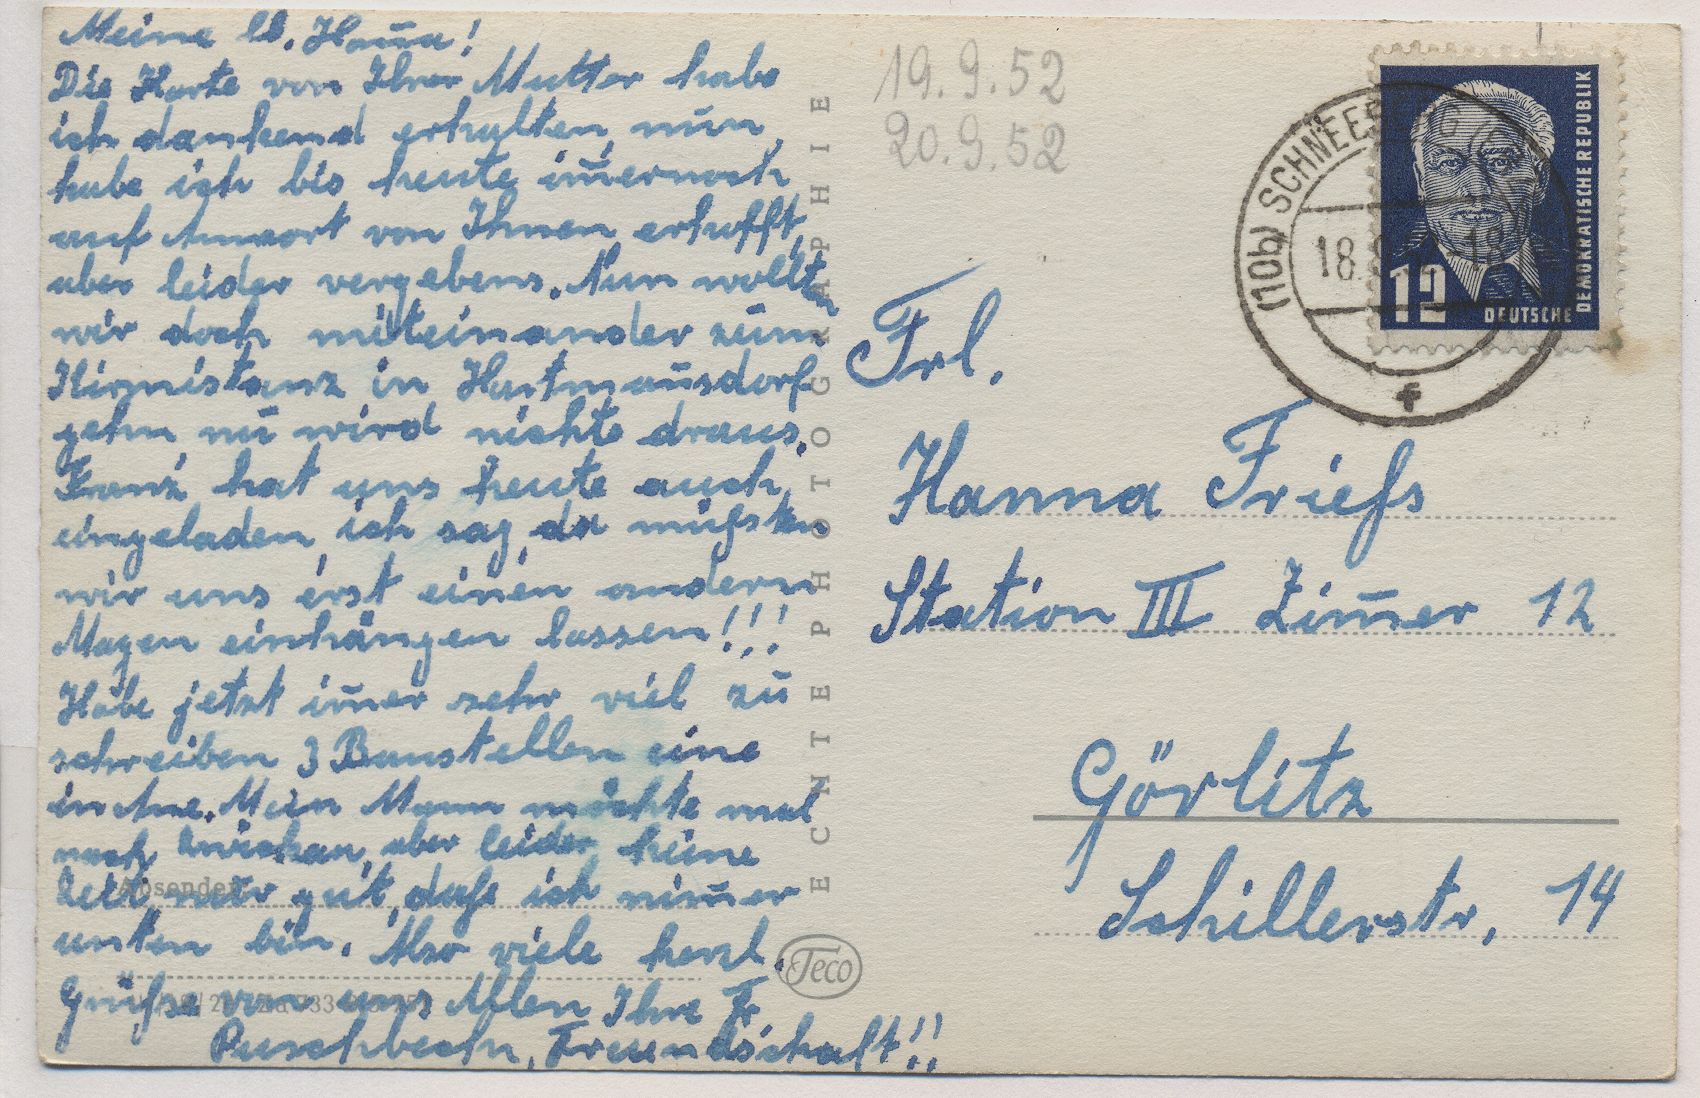 Meine lb. Hanna!
Die Karte von Ihrer Mutter habe
ich dankend erhalten, nun
habe ich bis heute im̄ernoch
auf Antwort von Ihnen erhofft,
aber leider vergebens. Nun wollten
wir doch miteinander zum
Kirmistanz in Hartmannsdorf
gehn, nu wird nichte draus.
Franz hat uns heute auch
eingeladen, ich sag, da müssten
wir uns erst einen andern
Magen einhängen lassen!!!
Habe jetzt im̄er sehr viel zu
schreiben 3 Baustellen, eine
in Aue. Mein Mann möchte mal
nach Zwickau, aber leider keine
Zeit, nur gut, dass ich nim̄er
unten bin. Also viele herzl.
Grüsse von uns Allen Ihre Fr.
Puschbeck, Freundschaft!!
Absender:
ECHTE PHOTOGRAPHIE
Teco
19.9.52
20.9.52
(10b) SCHNEEBERG
18.9.
f
12
DEUTSCHE
DEMOKRATISCHE REPUBLIK
Frl.
Hanna Friess
Station III Zim̄er 12
Görlitz
Schillerstr, 14